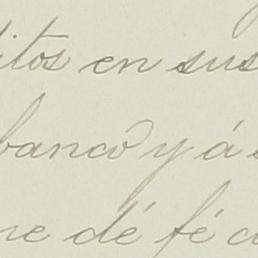 itos en sus
banco y á
ne dé fé c